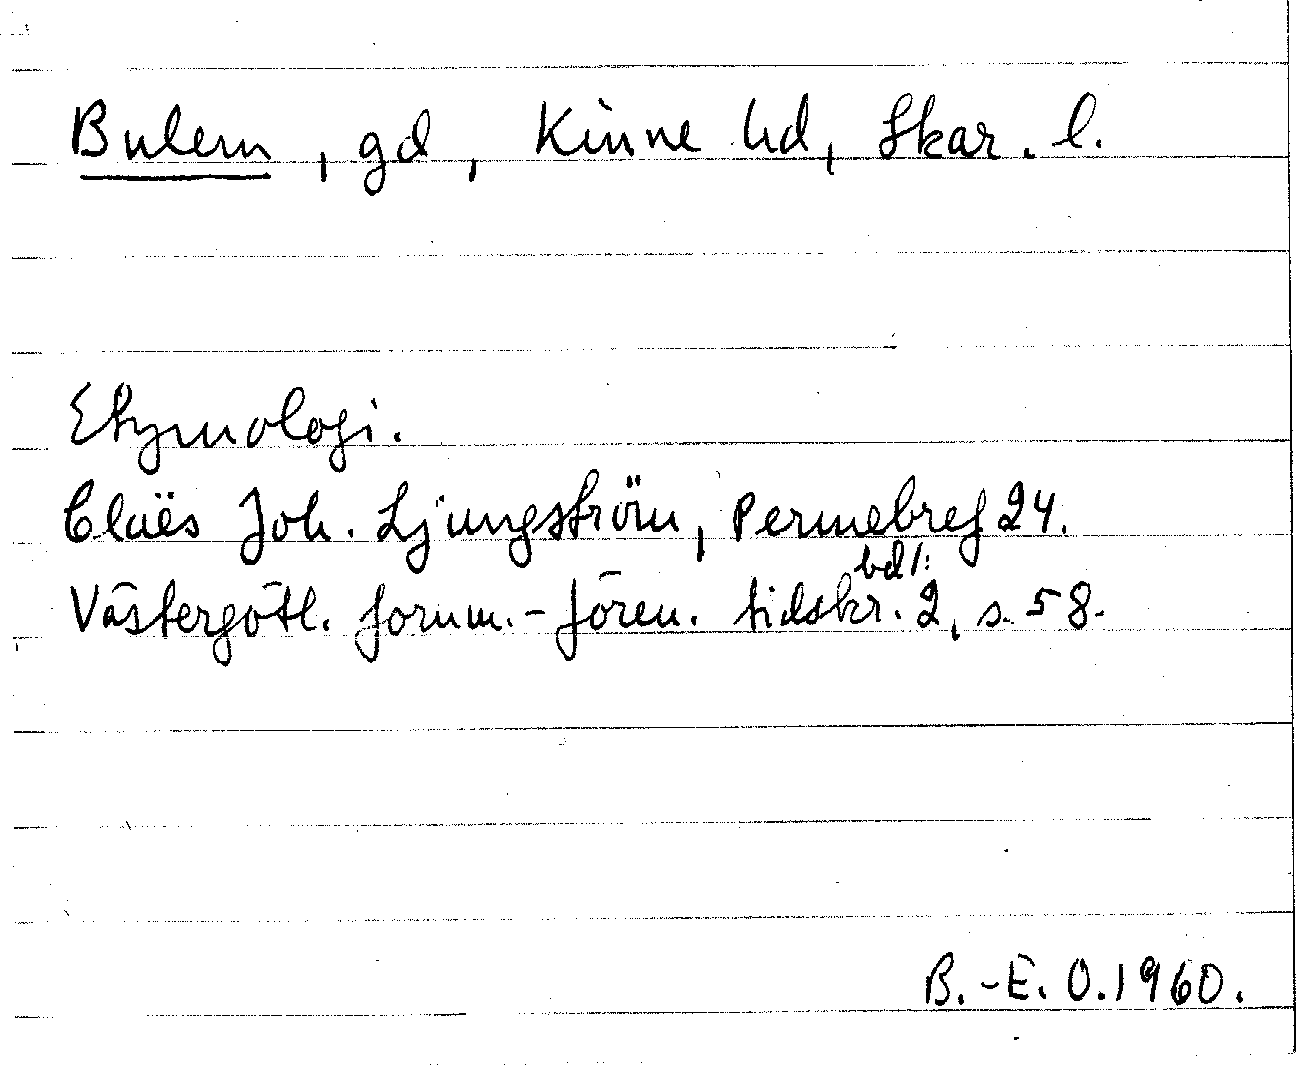 Bulern, gd, Kinne hd, Skar. l.
Etymologi.
Claës Joh. Ljungström, Permebref 24.
Västergötl. fornm.-fören. tidskr. bd 1: 2, s. 58.
B.-E. O. 1960.